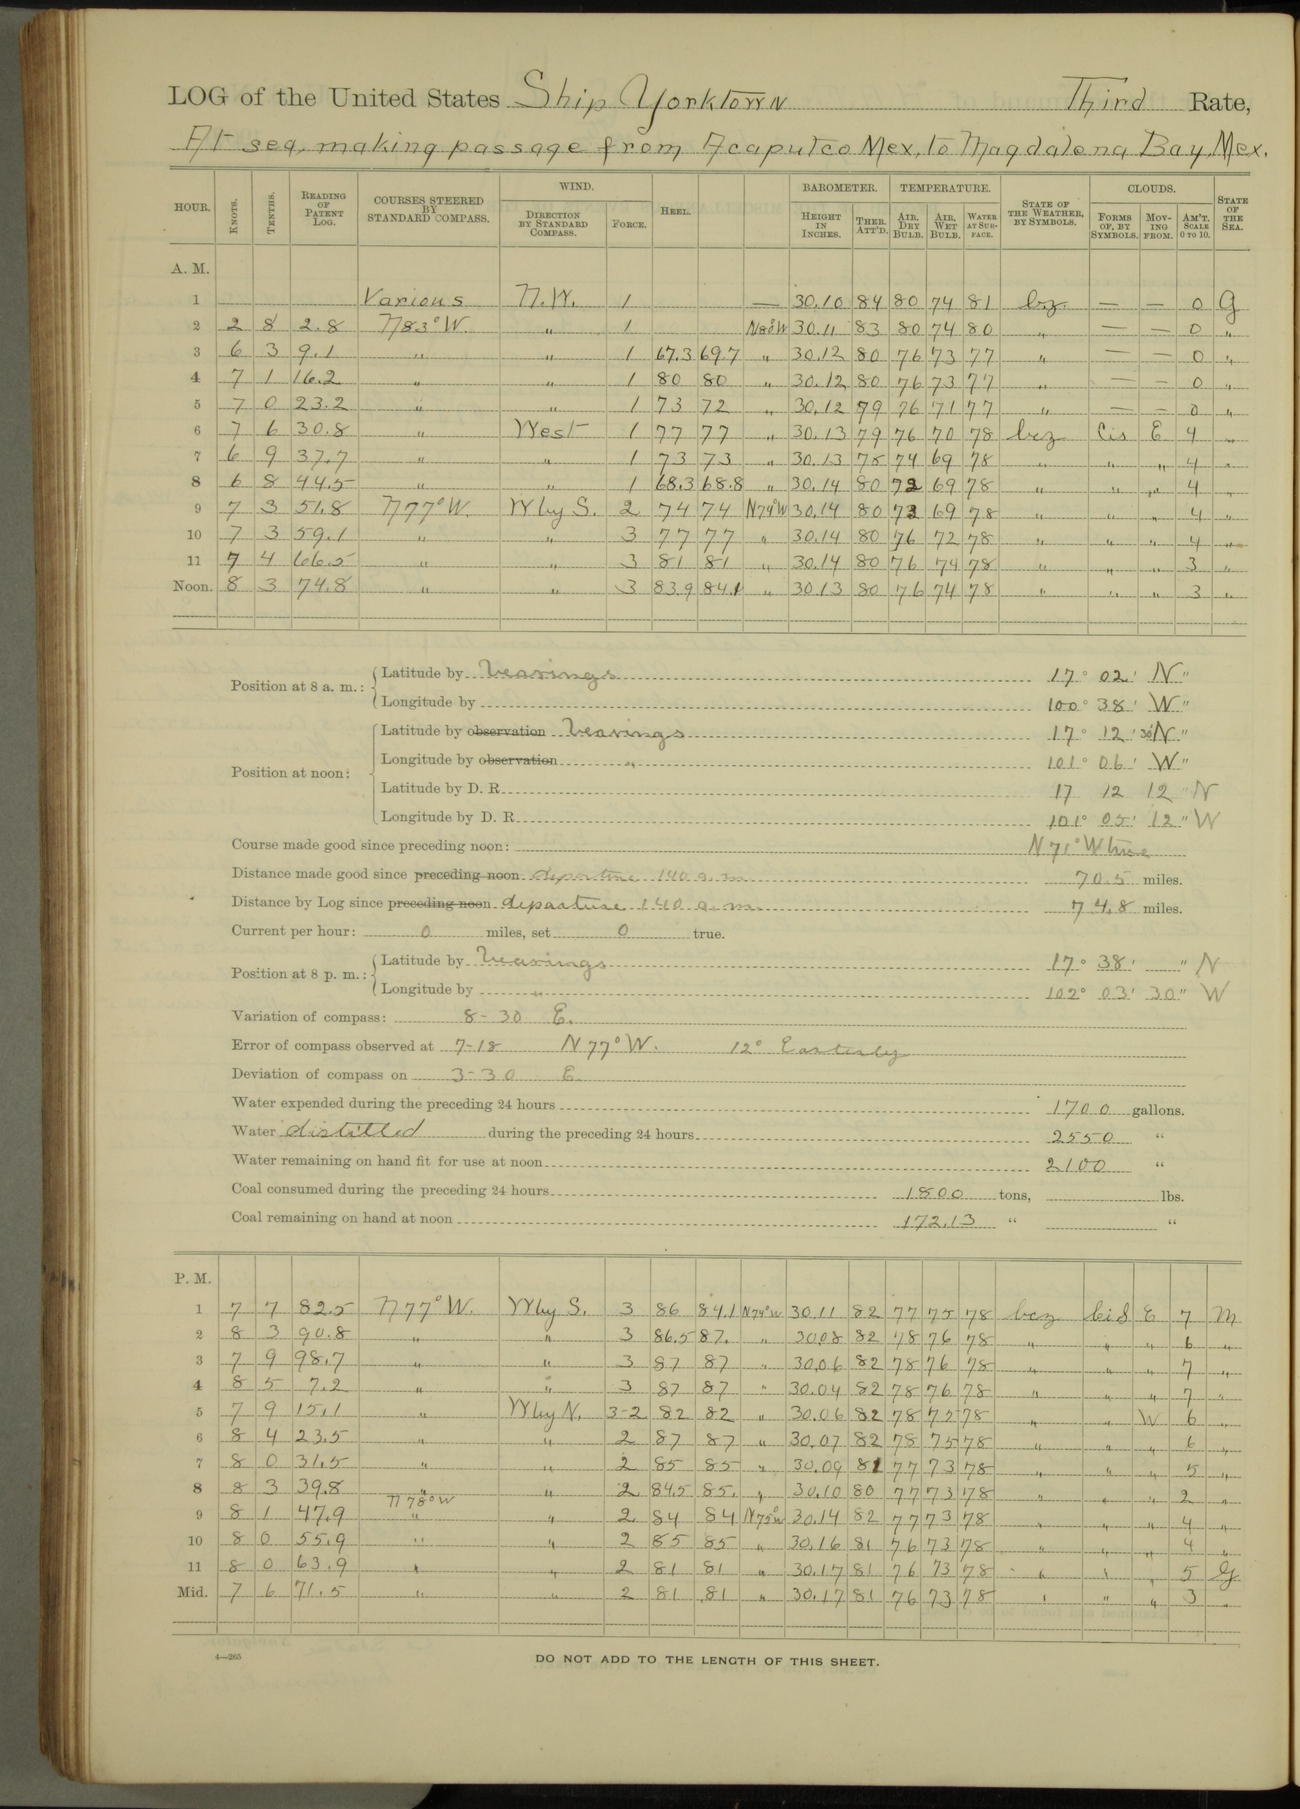 LOG of the United States Ship Yorktown Third Rate,
At sea, making passage from Acapulco Mex, to Magdalena Bay, Mex.
HOUR. KNOTS. TENTHS. READING OF PATENT LOG. COURSES STEERED BY STANDARD COMPASS. WIND. DIRECTION BY STANDARD COMPASS. FORCE. HEEL. BAROMETER. HEIGHT IN INCHES. THER. ATT'D. TEMPERATURE. AIR, DRY BULB. AIR, WET BULB. WATER AT SURFACE. STATE OF THE WEATHER, BY SYMBOLS. CLOUDS. FORMS OF, BY SYMBOLS. MOVING FROM. AM'T. SCALE 0 TO 10. STATE OF THE SEA.
A. M.
1 Various N.W. 1 — 30.10 84 80 74 81 bz — — 0 G
2 2 8 2.8 N83°W. " 1 N80°W 30.11 83 80 74 80 " — — 0 "
3 6 3 9.1 " " 1 67.3 69.7 " 30.12 80 76 73 77 " — — 0 "
4 7 1 16.2 " " 1 80 80 " 30.12 80 76 73 77 " — — 0 "
5 7 0 23.2 " " 1 73 72 " 30.12 79 76 71 77 " — — 0 "
6 7 6 30.8 " West 1 77 77 " 30.13 79 76 70 78 bcz Cis E 4 "
7 6 9 37.7 " " 1 73 73 " 30.13 75 74 69 78 " " " 4 "
8 6 8 44.5 " " 1 68.3 68.8 " 30.14 80 72 69 78 " " " 4 "
9 7 3 51.8 N77°W. W by S. 2 74 74 N74°W 30.14 80 72 69 78 " " " 4 "
10 7 3 59.1 " " 3 77 77 " 30.14 80 76 72 78 " " " 4 "
11 7 4 66.5 " " 3 81 81 " 30.14 80 76 74 78 " " " 3 "
Noon. 8 3 74.8 " " 3 83.9 84.1 " 30.13 80 76 74 78 " " " 3 "
Position at 8 a. m.: Latitude by bearings 17° 02' N "
Longitude by 100° 38' W "
Position at noon: Latitude by observation bearings 17° 12' 30 N "
Longitude by observation " 101° 06' W "
Latitude by D. R. 17 12 12 " N
Longitude by D. R. 101° 05' 12 " W
Course made good since preceding noon: N 71° W true
Distance made good since preceding noon departure 1 40 a. m. 70.5 miles.
Distance by Log since preceding noon departure 1 40 a. m. 74.8 miles.
Current per hour: 0 miles, set 0 true.
Position at 8 p. m.: Latitude by bearings 17° 38' " N
Longitude by " 102° 03' 30" W
Variation of compass: 8-30 E.
Error of compass observed at 7-18 N 77° W. 12° Easterly
Deviation of compass on 3-30 E
Water expended during the preceding 24 hours 1700 gallons.
Water distilled during the preceding 24 hours 2550 "
Water remaining on hand fit for use at noon 2100 "
Coal consumed during the preceding 24 hours 1800 tons, lbs.
Coal remaining on hand at noon 172.13 " "
P. M.
1 7 7 82.5 N77°W. W by S. 3 86 84.1 N74°W 30.11 82 77 75 78 bcz CiS E 7 M
2 8 3 90.8 " " 3 86.5 87. " 30.08 82 78 76 78 " " " 6 "
3 7 9 98.7 " " 3 87 87 " 30.06 82 78 76 78 " " " 7 "
4 8 5 7.2 " " 3 87 87 " 30.04 82 78 76 78 " " " 7 "
5 7 9 15.1 " W by N. 3-2 82 82 " 30.06 82 78 75 78 " " W 6 "
6 8 4 23.5 " " 2 87 87 " 30.07 82 78 75 78 " " " 6 "
7 8 0 31.5 " " 2 85 85 " 30.09 81 77 73 78 " " " 5 "
8 8 3 39.8 " " 2 84.5 85. " 30.10 80 77 73 78 " " " 2 "
N78°W
9 8 1 47.9 " " 2 84 84 N75°W 30.14 82 77 73 78 " " " 4 "
10 8 0 55.9 " " 2 85 85 " 30.16 81 76 73 78 " " " 4 "
11 8 0 63.9 " " 2 81 81 " 30.17 81 76 73 78 " " " 5 G
Mid. 7 6 71.5 " " 2 81 81 " 30.17 81 76 73 78 " " " 3 "
4—265
DO NOT ADD TO THE LENGTH OF THIS SHEET.